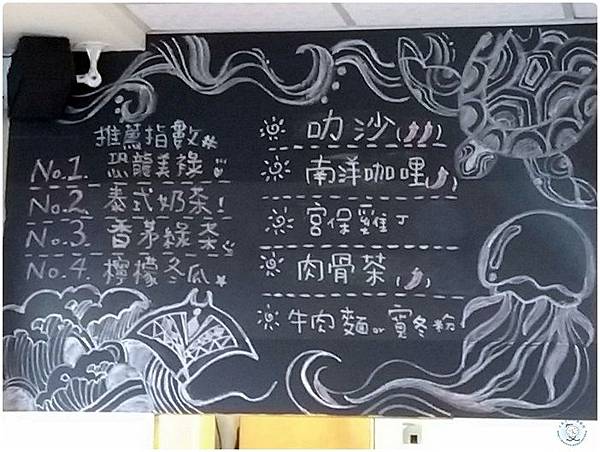 推薦指數
No.1. 恐龍美祿
No.2. 泰式奶茶!
No.3 香茅綠茶
No.4. 檸檬冬瓜
叻沙
南洋咖哩
宮保雞丁
肉骨茶
牛肉麵or寬冬粉